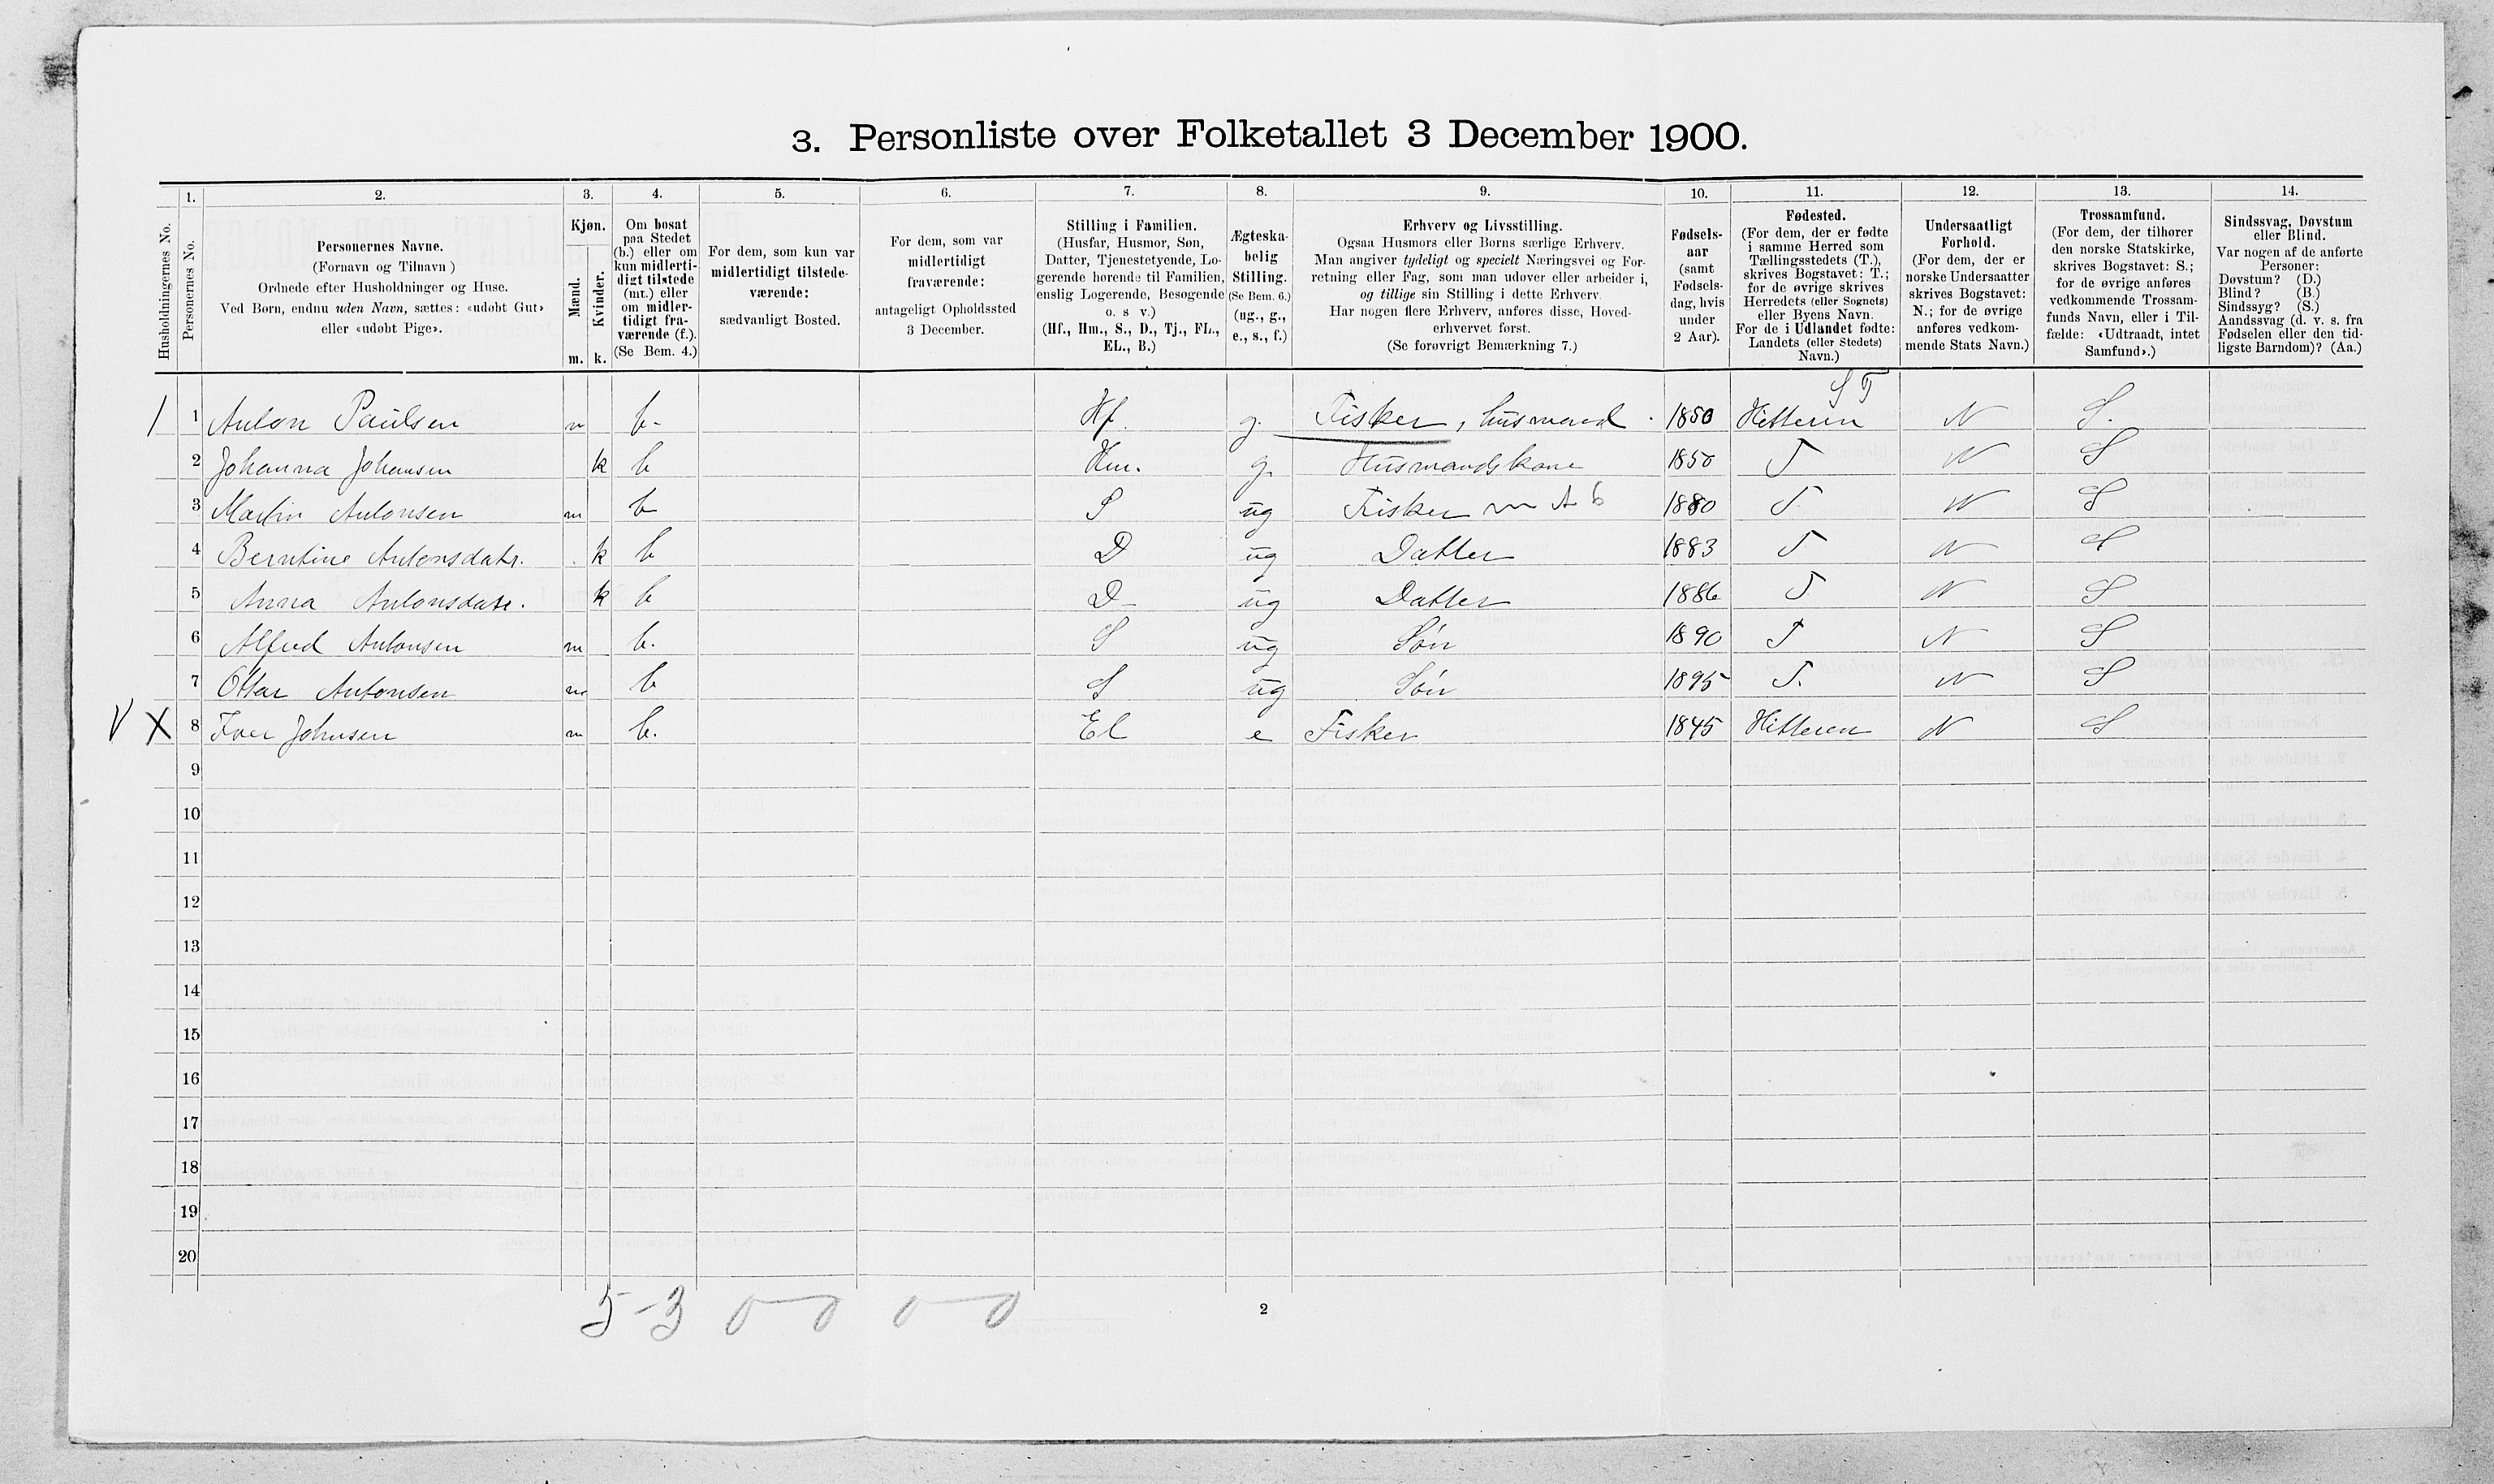 3. Personliste over Folketallet 3 December 1900.
1. 2. 3. 4. 5. 6. 7. 8. 9. 10. 11. 12. 13. 14.
Husholdningernes No.
Personernes No.
Personernes Navne.
(Fornavn og Tilnavn )
Ordnede efter Husholdninger og Huse.
Ved Børn, endnu uden Navn, sættes: «udøbt Gut»
eller «udøbt Pige».
Kjøn.
Mænd.
Kvinder.
m. k.
Om bosat
paa Stedet
(b.) eller om
kun midlerti-
digt tilstede
(mt.) eller
om midler-
tidigt fra-
værende (f.).
(Se Bem. 4.)
For dem, som kun var
midlertidigt tilstede-
værende:
sædvanligt Bosted.
For dem, som var
midlertidigt
fraværende:
antageligt Opholdssted
3 December.
Stilling i Familien.
(Husfar, Husmor, Søn,
Datter, Tjenestetyende, Lo-
gerende hørende til Familien,
enslig Logerende, Besøgende
o. s v.)
(Hf., Hm., S., D., Tj., FL.,
EL., B.)
Ægteska-
belig
Stilling.
(Se Bem. 6.)
(ug., g.,
e., s., f.)
Erhverv og Livsstilling.
Ogsaa Husmors eller Børns særlige Erhverv.
Man angiver tydeligt og specielt Næringsvei og For-
retning eller Fag, som man udøver eller arbeider i,
og tillige sin Stilling i dette Erhverv.
Har nogen flere Erhverv, anføres disse, Hoved-
erhvervet først.
(Se forøvrigt Bemærkning 7.)
Fødsels-
aar
(samt
Fødsels-
dag, hvis
under
2 Aar).
Fødested.
(For dem, der er fødte
i samme Herred som
Tællingsstedets (T.),
skrives Bogstavet: T.;
for de øvrige skrives
Herredets (eller Sognets)
eller Byens Navn.
For de i Udlandet fødte:
Landets (eller Stedets)
Navn.)
Undersaatligt
Forhold.
(For dem, der er
norske Undersaatter
skrives Bogstavet:
N.; for de øvrige
anføres vedkom-
mende Stats Navn.)
Trossamfund.
(For dem, der tilhører
den norske Statskirke,
skrives Bogstavet: S.;
for de øvrige anføres
vedkommende Trossam-
funds Navn, eller i Til-
fælde: «Udtraadt, intet
Samfund».)
Sindssvag, Døvstum
eller Blind.
Var nogen af de anførte
Personer:
Døvstum? (D.)
Blind? (B.)
Sindssyg? (S.)
Aandssvag (d. v. s. fra
Fødselen eller den tid-
ligste Barndom)? (Aa.)
1 1 Anton Paulsen m b- Hf. g. Fisker, husmand 1850 Hitteren N S.
2 Johanna Johansen k b Hm. g. Husmandskone 1850 T N S
3 Martin Antonsen m b S ug Fisker 1880 T N S
4 Berntine Antonsdatr. k b D ug Datter 1883 T N S
5 Anna Antonsdatr. k b D- ug Datter 1886 T N S
6 Alfred Antonsen m b. S ug Søn 1890 T N S
7 Ottar Antonsen m b S ug Søn 1895 T. N S
V X 8 Iver Johnsen m b. El e Fisker 1845 Hitteren N S
9
10
11
12
13
14
15
16
17
18
19
20
5-3 0 0 0 0
2